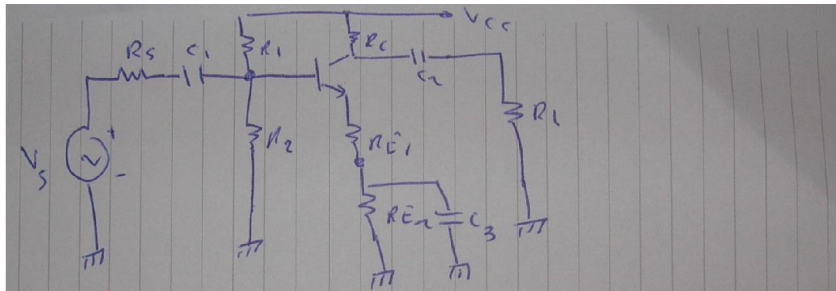 Vcc
Rs
C1
R1
Rc
C2
R2
RE1
RL
Vs
+
-
RE2
C3